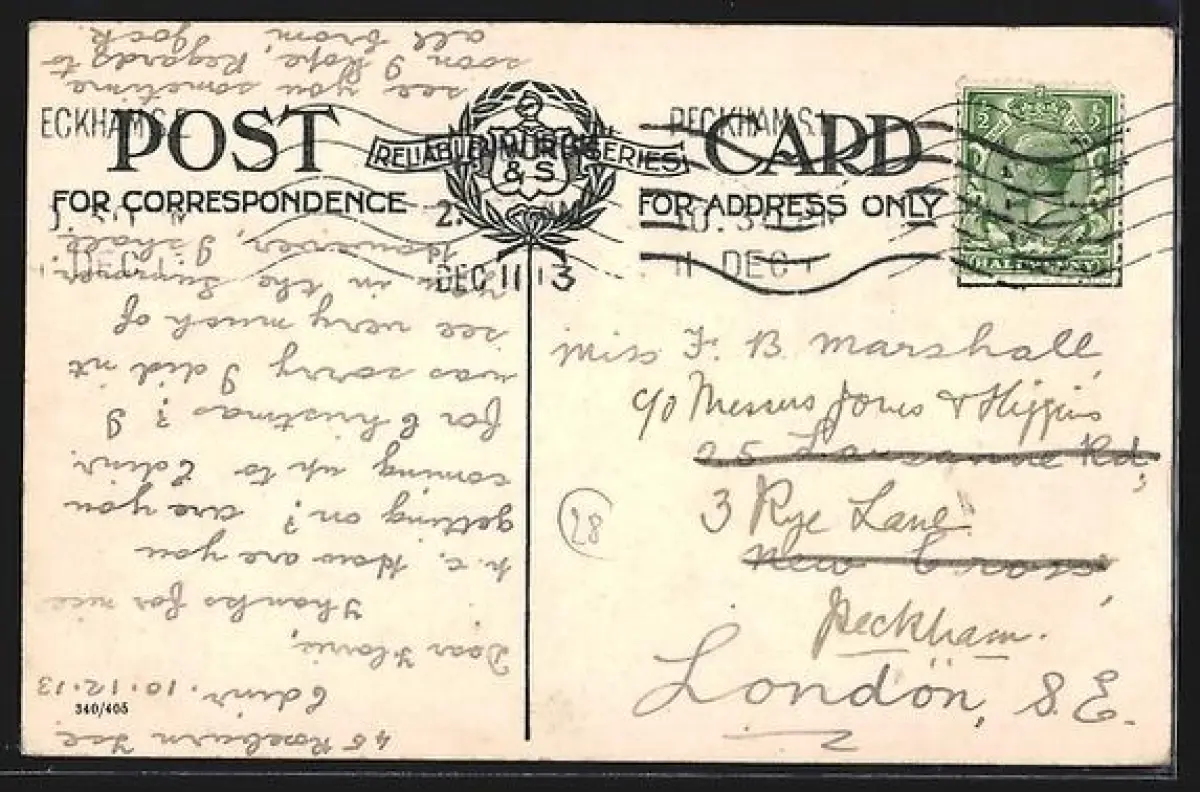 POST CARD
FOR CORRESPONDENCE
FOR ADDRESS ONLY
RELIABLE
SERIES
& S.
PECKHAM S.E
ECKHAM S.E
DEC 11 13
11 DEC
HALFPENNY
45 Roseburn Tce
Edinr. 10.12.13
Dear Florrie,
Thanks for nice
p.c. How are you
getting on? Are you
coming up to Edinr.
for Christmas? I
was sorry I did nt
see very much of
you in the summer.
However, I shall
see you sometime
soon I hope, Regards to
all from Jock
Miss F. B. Marshall,
c/o Messrs Jones & Higgins
25 Lausanne Rd,
3 Rye Lane
New Cross,
Peckham.
London, S.E.
28
340/405